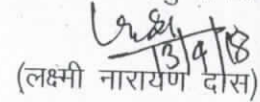 13/9/18
(लक्ष्मी नारायण दास)